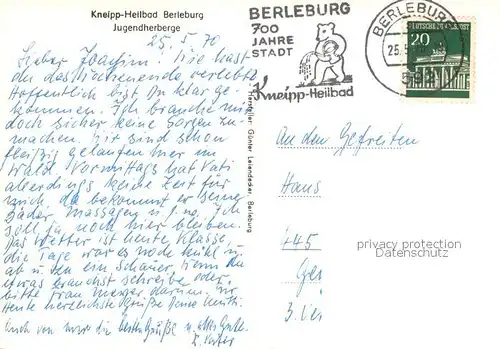 Kneipp-Heilbad Berleburg
Jugendherberge
25. 5. 70
Lieber Joachim! Wie hast
du das Wochenende verlebt?
Hoffentlich bist du klar ge-
kommen. Ich brauche mir
doch sicher keine Sorgen zu
machen. Wir sind schon
fleißig gelaufen hier im
Wald. Vormittags hat Vati
allerdings keine Zeit für
mich, da bekommt er seine
Bäder, Massagen u.s.w. Ich
soll ja noch hier bleiben.
Das Wetter ist heute Klasse
die Tage war es noch kühl u.
ab u. zu ein Schauer. Wenn du
etwas brauchst schreibe oder
bitte Frau darum. Für
heute herzlichste Grüße Deine Mutti.
Auch von mir die besten Grüße u. alles Gute
Vater
Hersteller: Günter Leiendecker, Berleburg
BERLEBURG
700
JAHRE
STADT
Kneipp-Heilbad
BERLEBURG
25.5.
DEUTSCHE BUNDESPOST
20
An den Gefreiten
Hans
445
3.
privacy protection
Datenschutz